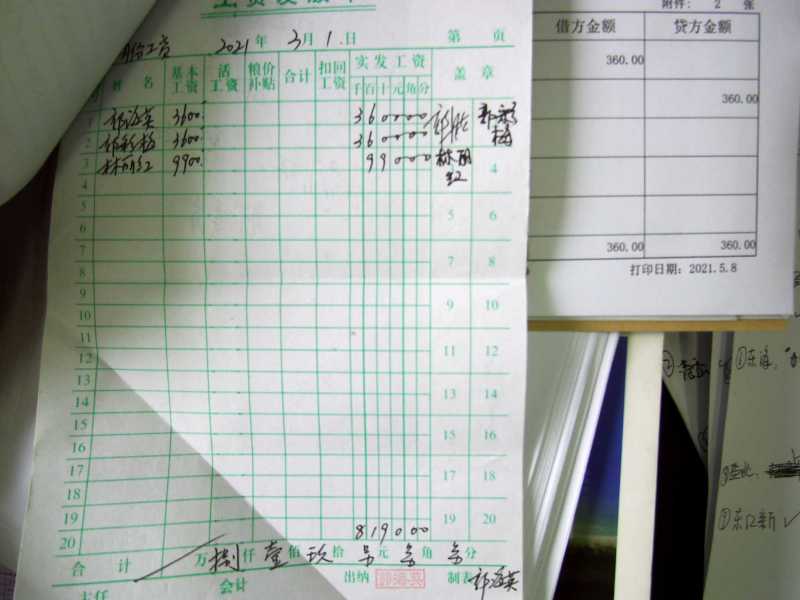 附件: 2 张
借方金额 贷方金额
360.00
360.00
360.00 360.00
打印日期: 2021.5.8
工资
2021年 3月 1日 第 页
姓名 基本工资 活工资 粮价补贴 合计 扣回工资 实发工资 盖章
千百十元角分
1 郭海英 3600 360000
2 郭彩梅 3600 360000 郭彩梅
3 林丽红 9900 99000 林丽红
4 4
5 5 6
6
7 7 8
8
9 9 10
10
11 11 12
12
13 13 14
14
15 15 16
16
17 17 18
18
19 19 20
20 819000
合计 万 捌仟 壹佰 玖拾 元 角 分
主任 会计 出纳 郭海英 制表 郭海英
②
①东海
②东江新 ✓